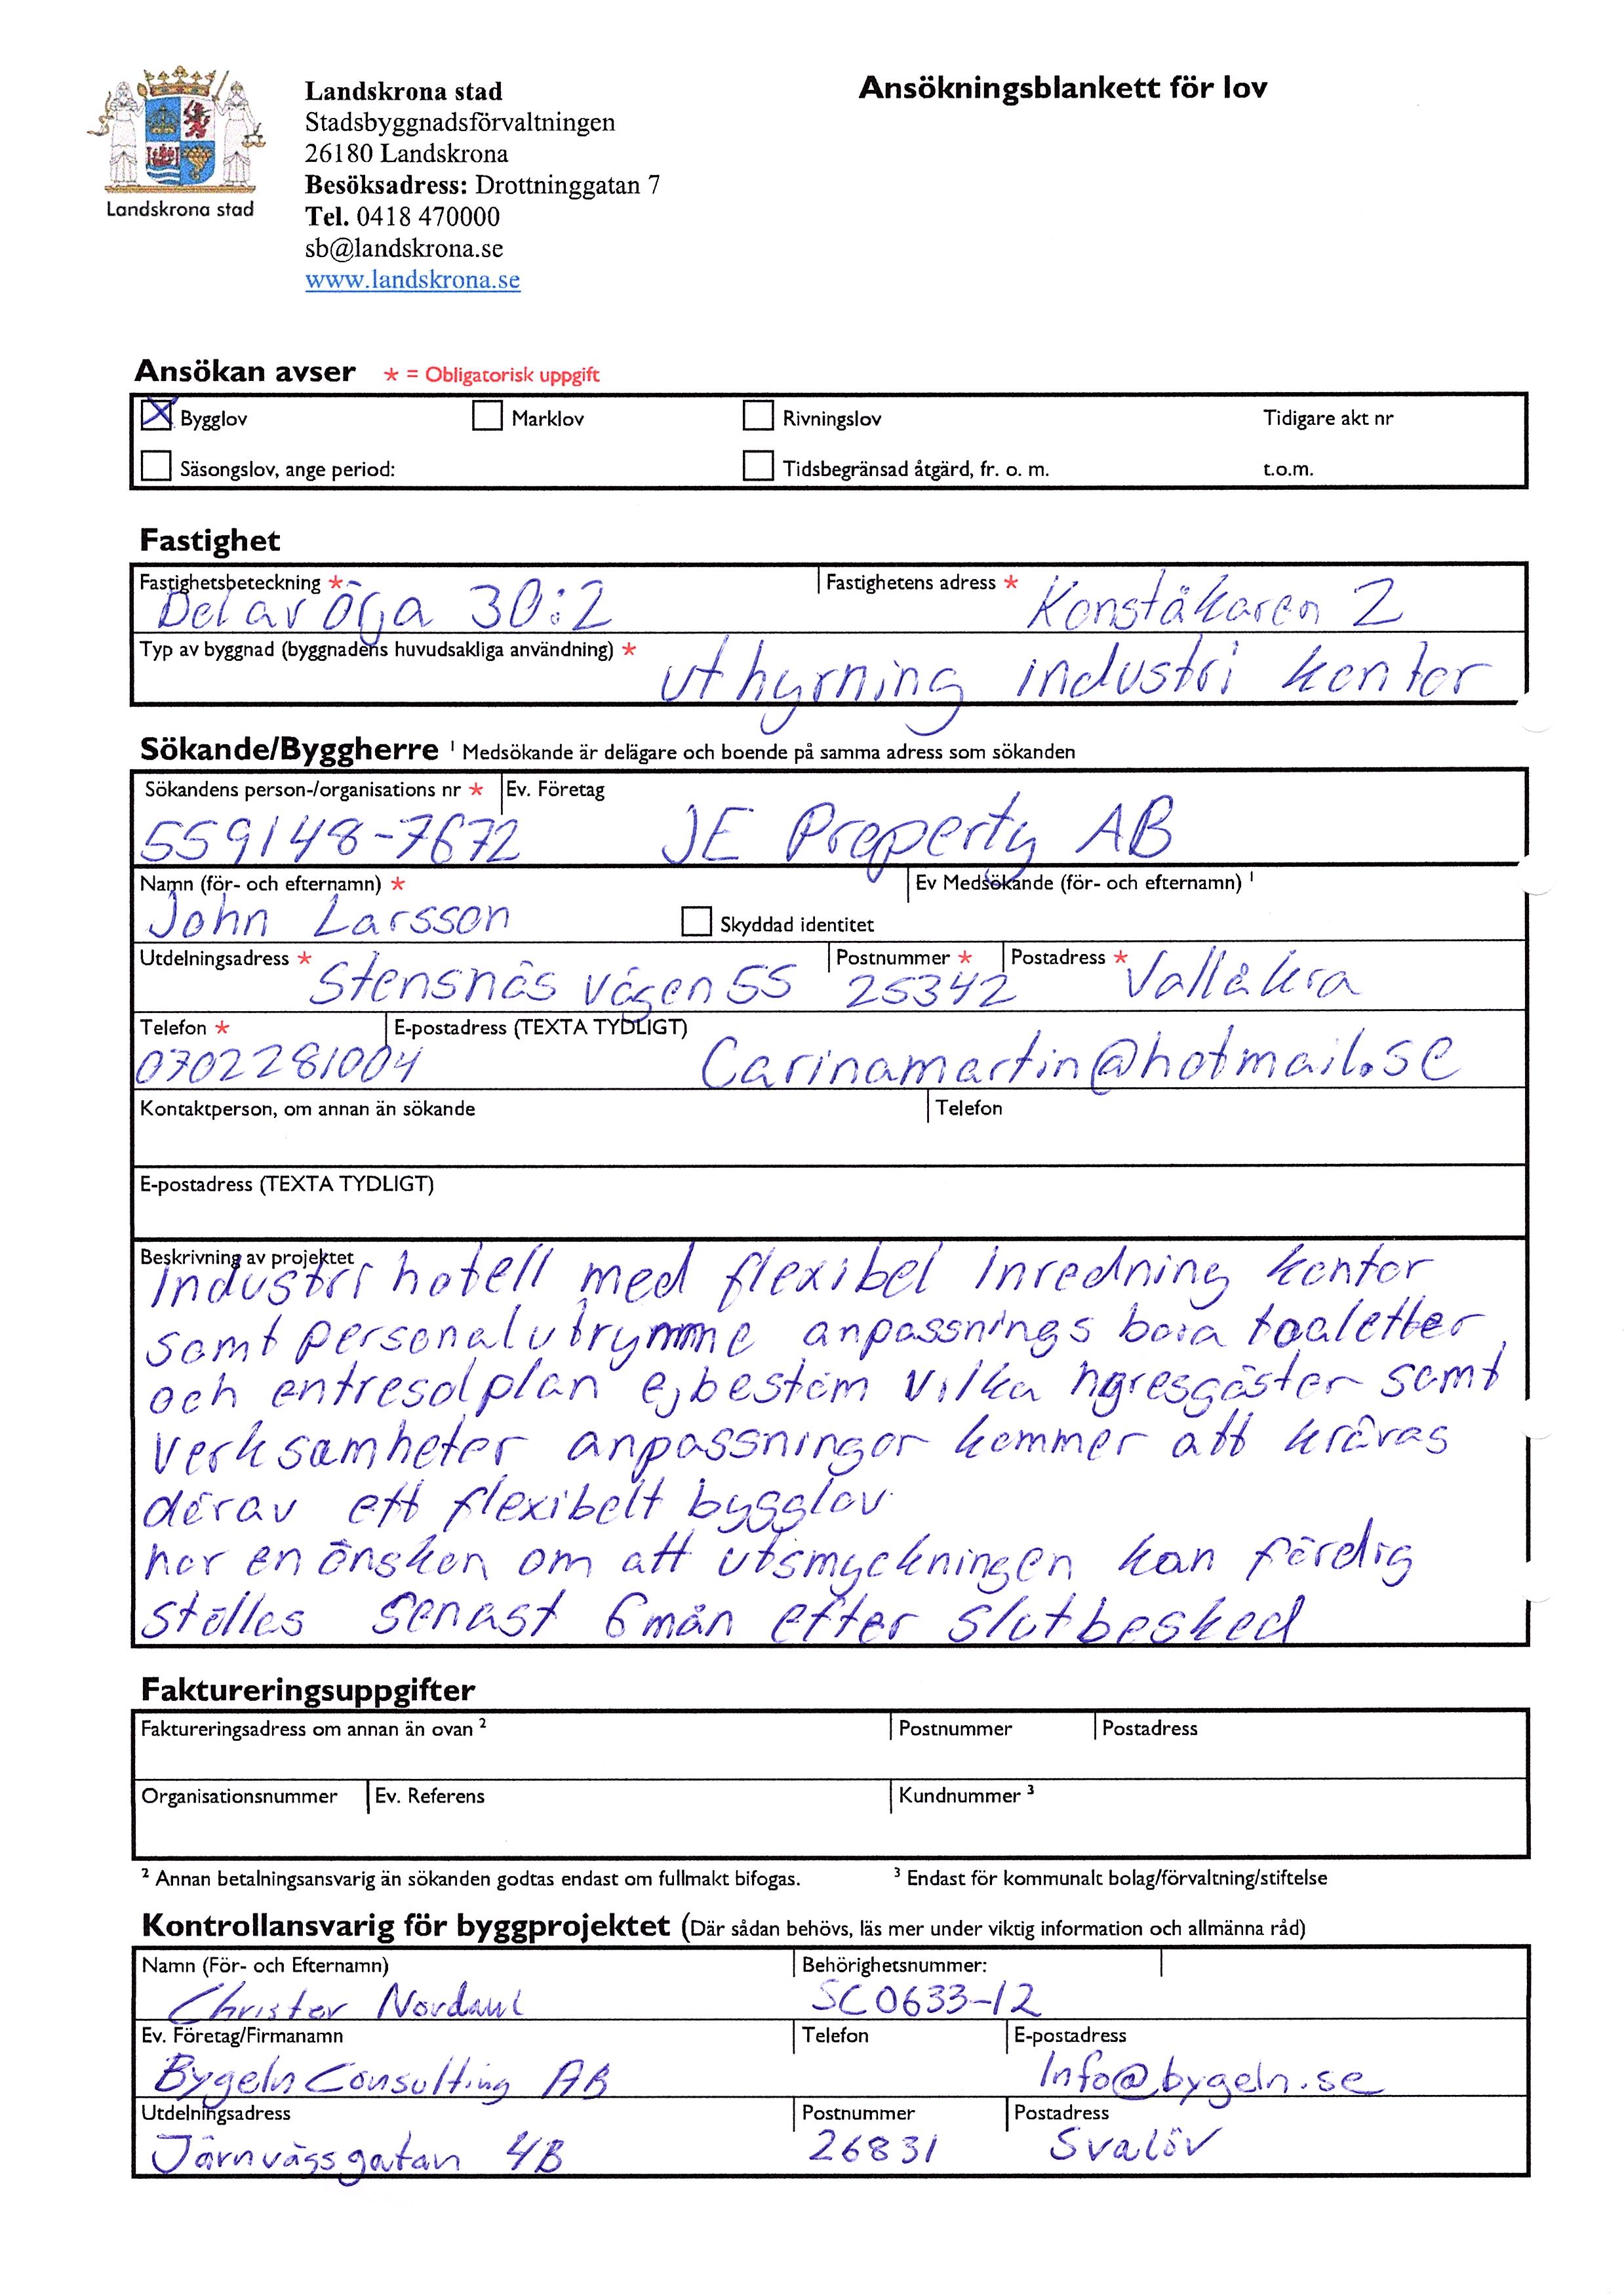 Landskrona stad
Landskrona stad
Stadsbyggnadsförvaltningen
26180 Landskrona
Besöksadress: Drottninggatan 7
Tel. 0418 470000
sb@landskrona.se
www.landskrona.se
Ansökningsblankett för lov
Ansökan avser * = Obligatorisk uppgift
Bygglov Marklov Rivningslov Tidigare akt nr
Säsongslov, ange period: Tidsbegränsad åtgärd, fr. o. m. t.o.m.
Fastighet
Fastighetsbeteckning * Fastighetens adress *
Del av Örja 30:2 Konståkaren 2
Typ av byggnad (byggnadens huvudsakliga användning) * uthyrning industri kontor
Sökande/Byggherre ¹ Medsökande är delägare och boende på samma adress som sökanden
Sökandens person-/organisations nr * Ev. Företag
559148-7672 JE Property AB
Namn (för- och efternamn) * Ev Medsökande (för- och efternamn) ¹
John Larsson Skyddad identitet
Utdelningsadress * Postnummer * Postadress *
Stensnäs vägen 55 25342 Vallåkra
Telefon * E-postadress (TEXTA TYDLIGT)
0702281004 Carinamartin@hotmail.se
Kontaktperson, om annan än sökande Telefon
E-postadress (TEXTA TYDLIGT)
Beskrivning av projektet
Industri hotell med flexibel inredning kontor
samt personalutrymme anpassnings bara toaletter
och entresolplan ej bestäm vilka hyresgäster samt
verksamheter anpassningar kommer att krävas
därav ett flexibelt bygglov
har en önskan om att utsmyckningen kan färdig
ställas senast 6 mån efter slutbesked
Faktureringsuppgifter
Faktureringsadress om annan än ovan ² Postnummer Postadress
Organisationsnummer Ev. Referens Kundnummer ³
² Annan betalningsansvarig än sökanden godtas endast om fullmakt bifogas. ³ Endast för kommunalt bolag/förvaltning/stiftelse
Kontrollansvarig för byggprojektet (Där sådan behövs, läs mer under viktig information och allmänna råd)
Namn (För- och Efternamn) Behörighetsnummer:
Christer SC0633-12
Ev. Företag/Firmanamn Telefon E-postadress
Bygeln Consulting AB Info@bygeln.se
Utdelningsadress Postnummer Postadress
Järnvägsgatan 4B 26831 Svalöv